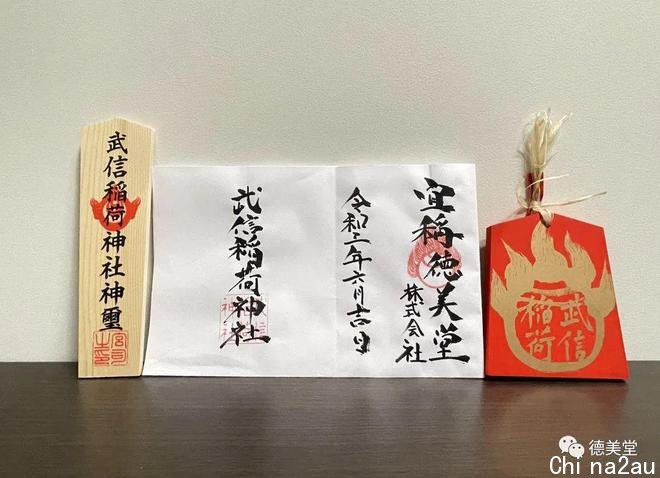 武信稲荷神社神璽
宮司
之印
宜稱徳美堂
株式会社
令和二年六月吉日
武信稲荷神社
武信
稲荷
德美堂
Chi na2au